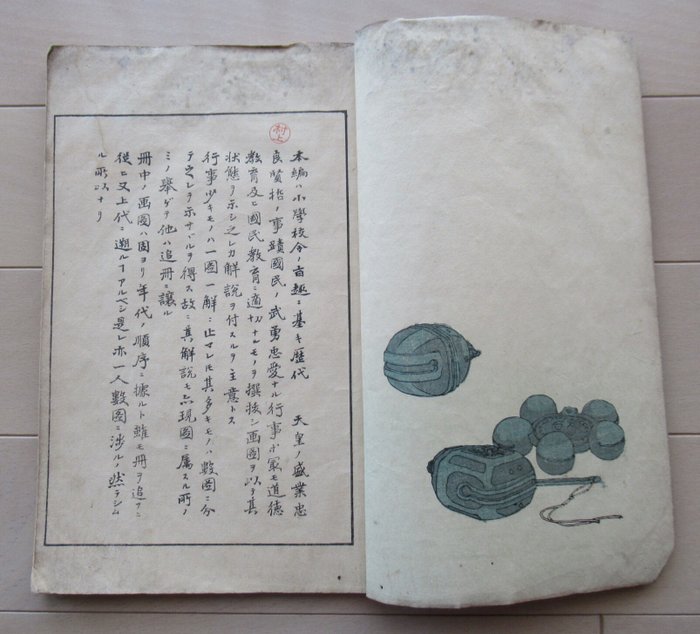 村上
本編ハ小學校令ノ旨趣ニ基キ歴代 天皇ノ盛業忠
良賢哲ノ事蹟國民ノ武勇忠愛ナル行事ホ冣モ道徳
教育及ヒ國民教育ニ適切ナルモノヲ撰拔シ画圖ヲ以テ其
状態ヲ示シ之レカ解説ヲ付スルヲ主意トス
行事少キモノハ一圖一解ニ止マレ𪜈其多キモノハ數圖ニ分
テ之レヲ示サヾルヲ得ス故ニ其解説モ亦現圖ニ属スル所ノ
ミノ舉ゲテ他ハ追冊ニ譲ル
冊中ノ画圖ハ固ヨリ年代ノ順序ニ據ルト雖モ冊ヲ追フニ
從ヒ又上代ニ遡ルヿアルベシ是レ亦一人數圖ニ渉ルノ然ラシム
ル所以ナリ